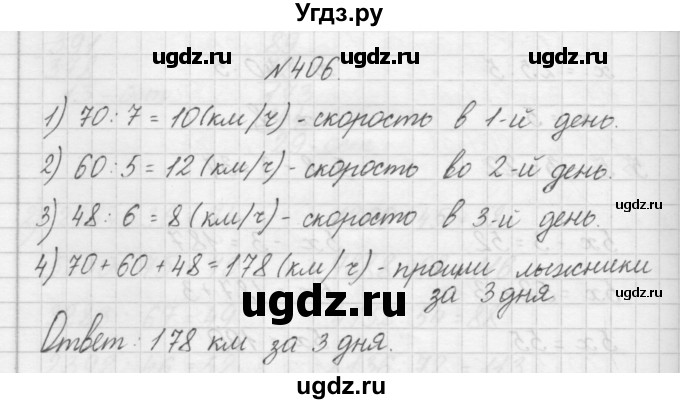 Угдз.ру
ugdz.ru ugdz.ru
№406.
1) 70:7=10(км/ч)-скорость в 1-й день.
ugdz.ru
2) 60:5=12(км/ч)-скорость во 2-й день.
ugdz.ru
3) 48:6=8(км/ч)-скорость в 3-й день.
4) 70+60+48=178(км/ч)-прошли лыжники
за 3 дня
ugdz.ru
Ответ: 178 км за 3 дня.
ugdz.ru ugdz.ru
ugdz.ru